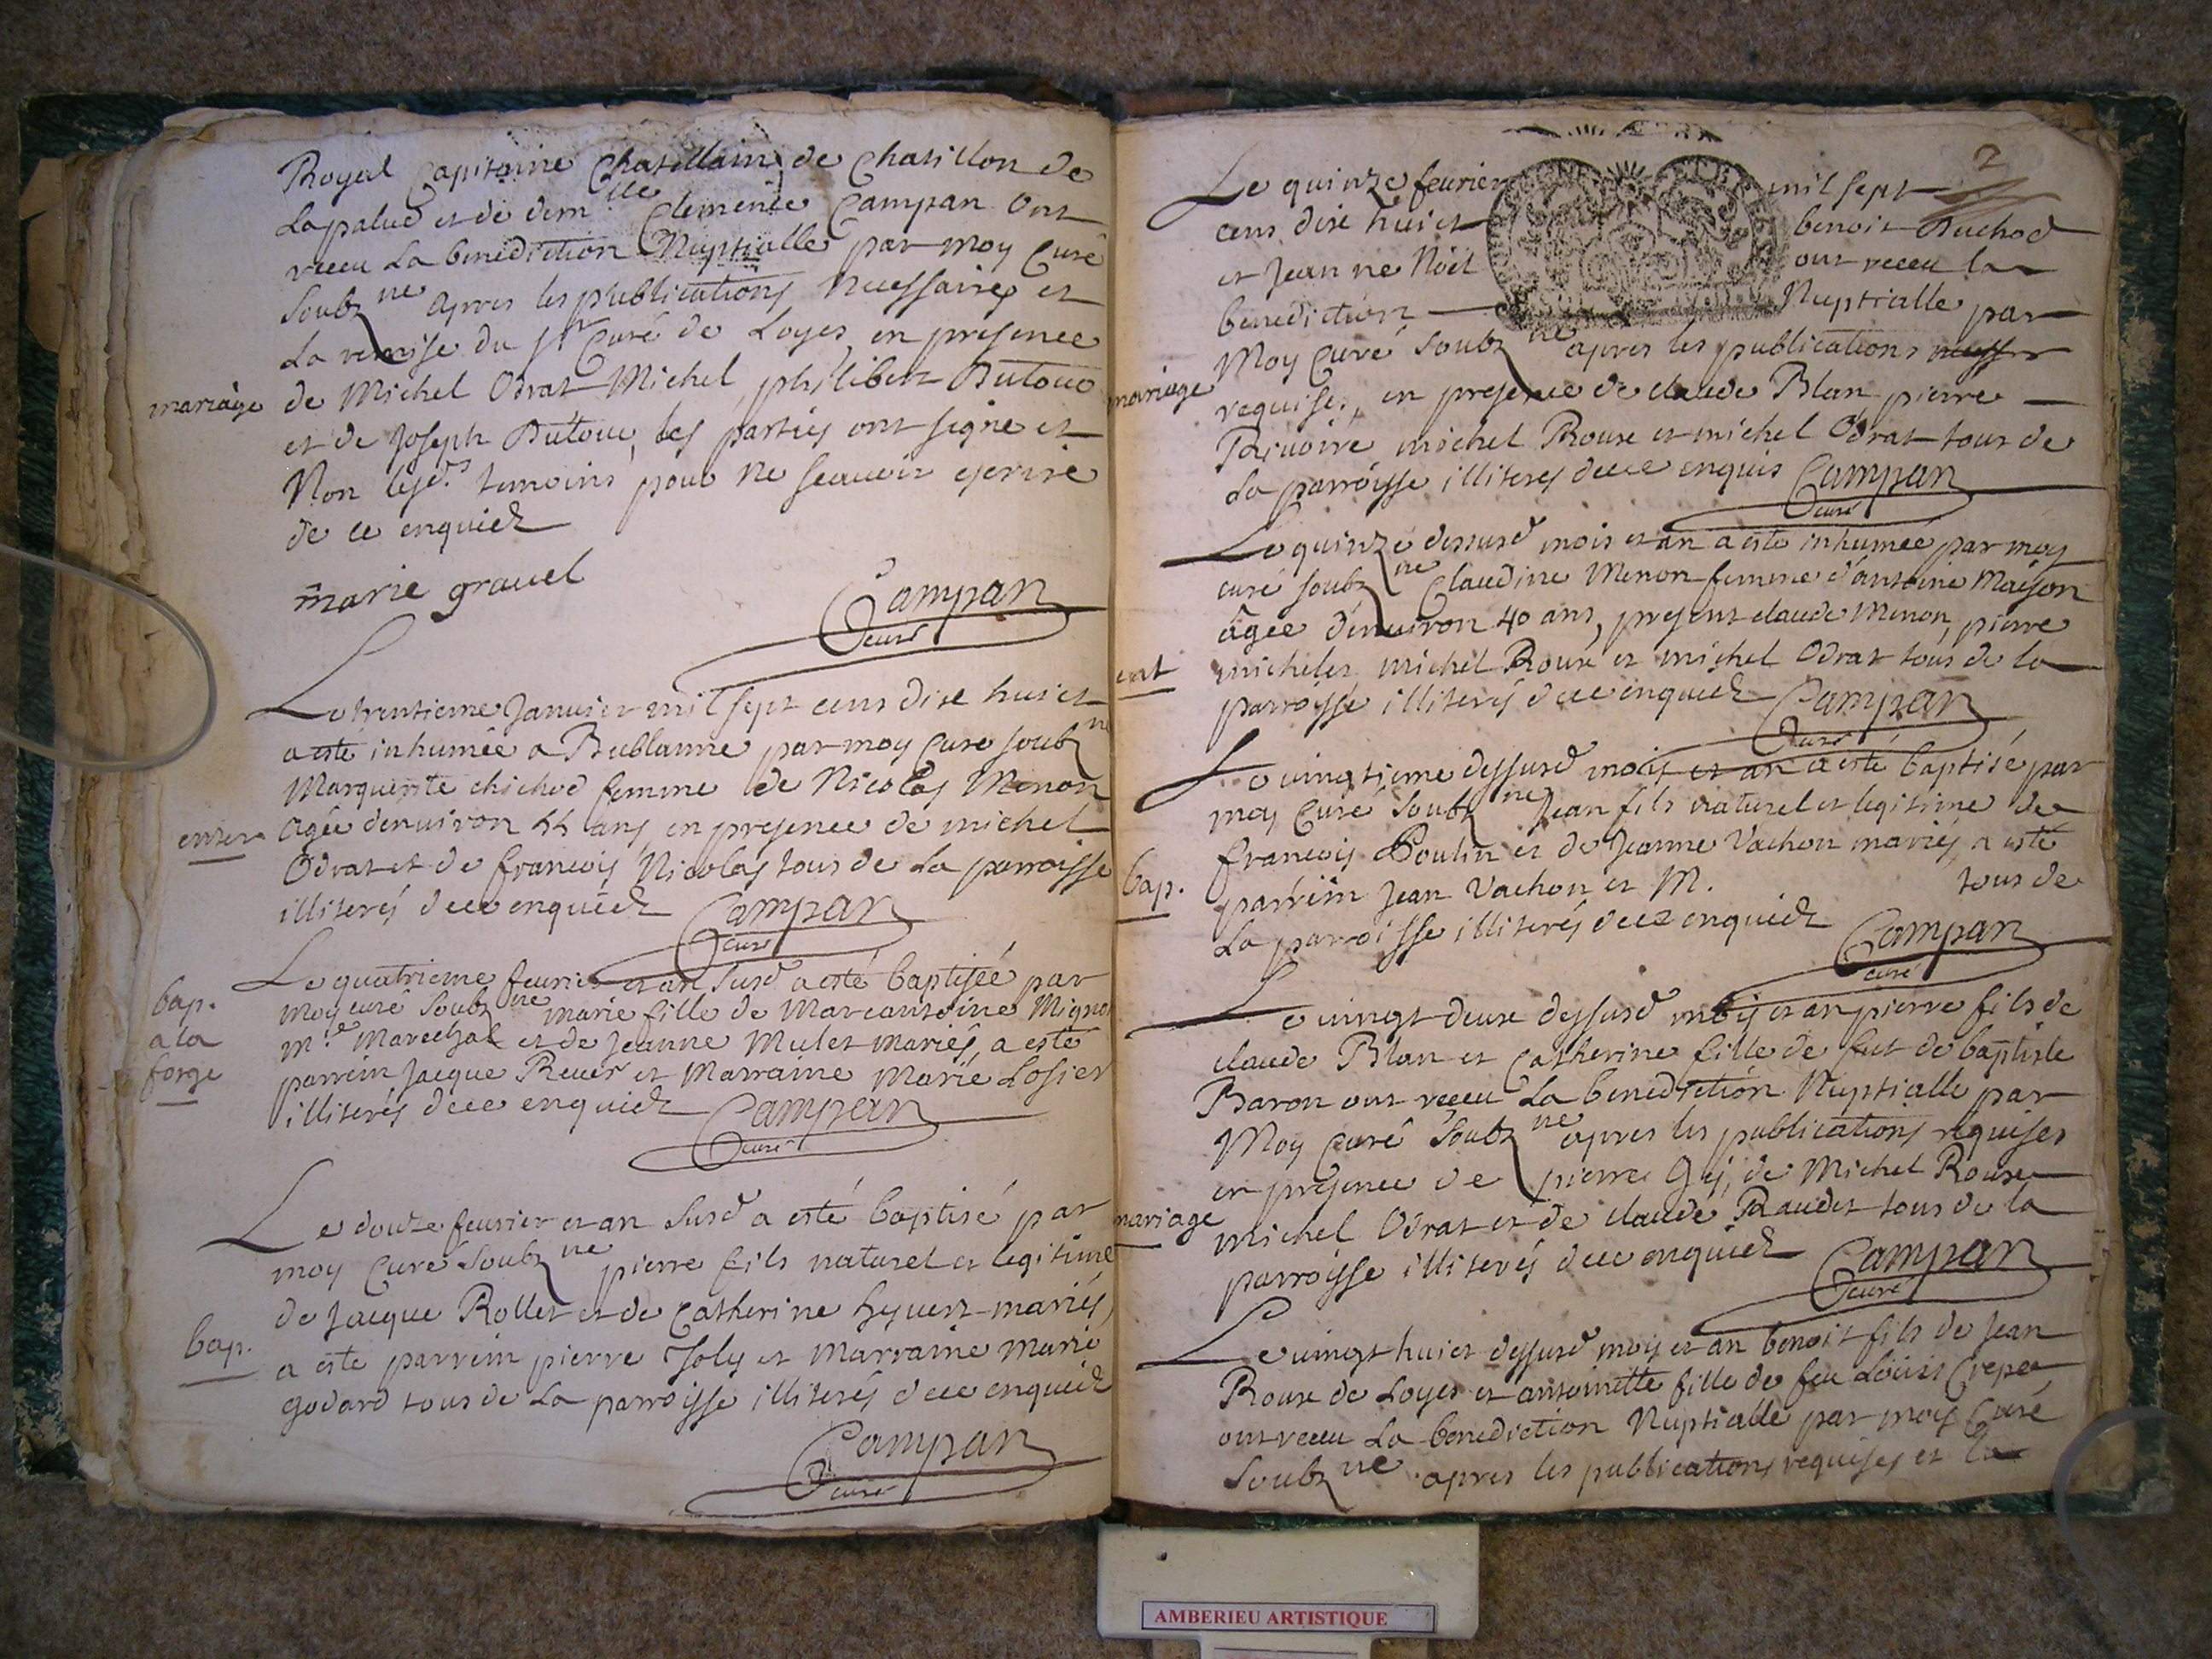 Royal Capitaine Chatellain de Chatillon de
Lapalud et de dem.lle Clemence Campan Ont
receu La benediction Nuptialle par moy Curé
Soubz ne apres les publications Necessaires et
La remise du Sr Curé de Loyes en presence
mariage
de Michel Odrat Michel, philibert Dutour
et de Joseph Dutour, les parties ont signé et
Non lesd.s temoins pour ne scavoir escrire
de ce enquich
marie gravel
Campan
curé
Le trentieme Janvier mil sept cens dixe huict
a esté inhumée a Bublanne par moy Curé soubz ne
Marguerite chichod femme de Nicolas Menon
enter
agée denviron 44 ans en presence de michel
Odrat et de francois Nicolas tous de La parroisse
illiterés dece enquich Campan
curé
Le quatrieme fevrier et an Susd a esté baptisée par
bap.
a la
forge
moy curé soubz ne marie fille de Marcantoine Mignot
m.e Marechal et de Jeanne Mulet mariés, a esté
parrein Jacque Rever et Marraine Marie Losier
illiterés dece enquich Campan
curé
Le douze fevrier et an Susd a esté baptisé par
moy Curé Soubz ne pierre fils naturel et legitime
de Jacque Rollet et de Catherine hyvert mariés,
bap.
a esté parrein pierre Joly et Marraine Marie
godard tous de La parroisse illiterés dece enquich
Campan
curé
2
Le quinze fevrier mil sept
cens dixe huict benoit Duchod
et Jeanne Noël ont receu la
benediction Nuptialle par
Moy Curé Soubz ne apres les publications
mariage
requises, en presence de claude Blan pierre
Rivoire michel Roux et michel Odrat tous de
La parroisse illiterés dece enquis Campan
curé
Le quinze dessusd mois et an a esté inhumée par moy
curé soubz ne Claudine Menon femme d'antoine Maison
âgée d'environ 40 ans, present claude Menon, pierre
ent
michelet michel Roux et michel Odrat tous de la
parroisse illiterés dece enquich Campan
curé
Le vingtieme dessusd mois et an a esté baptisé par
moy Curé Soubz ne Jean fils naturel et legitime de
francois Poulin et de Jeanne Vachon mariés, a esté
bap.
parrein Jean Vachon et M. tous de
La parroisse illiterés dece enquich
Campan
curé
Le vingt deux dessusd mois et an pierre fils de
claude Blan et Catherine fille de fut de baptiste
Baron ont receu La benediction Nuptialle par
Moy Curé Soubz ne apres les publications requises
en presence de pierre Gey, de Michel Roux
mariage
michel Odrat et de claude Raudet tous de la
parroisse illiterés dece enquich Campan
curé
Le vingt huict dessusd mois et an benoit fils de Jean
Roux de Loyes et antoinette fille de feu Loüis Crepet
ont receu La benediction Nuptialle par moy Curé
Soubz ne apres les publications requises et la
AMBERIEU ARTISTIQUE